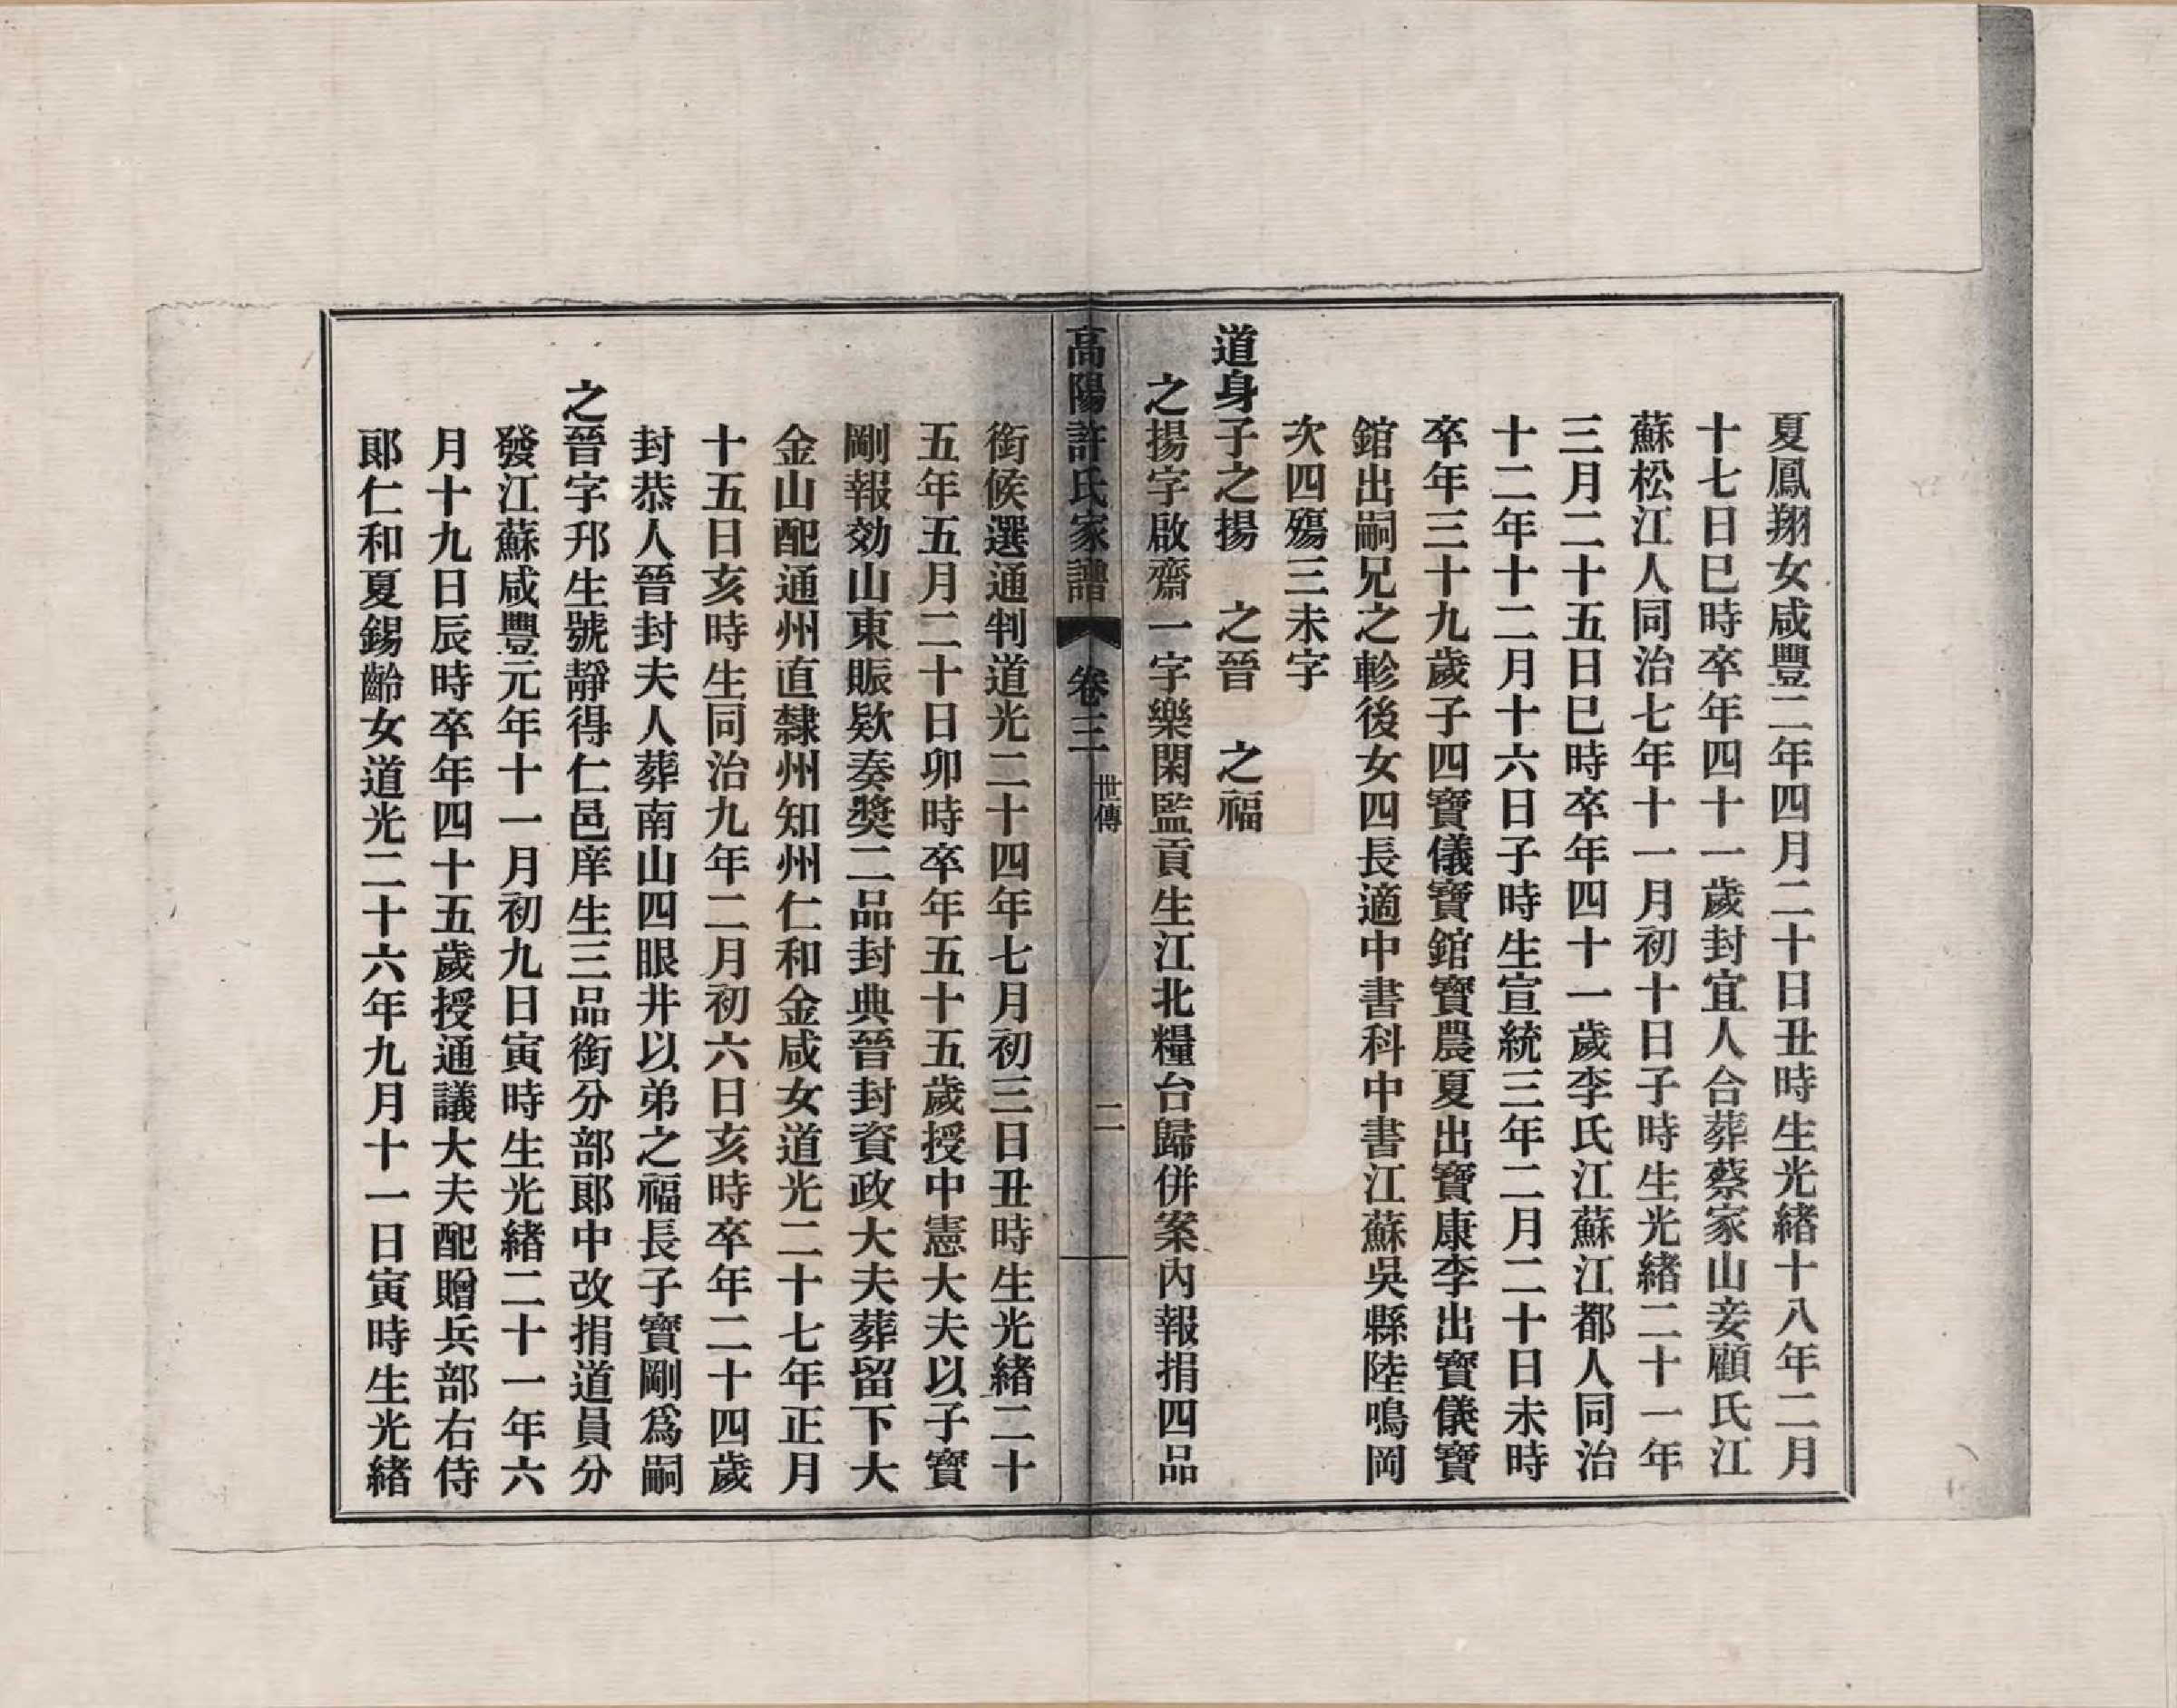 夏鳳翔女咸豐二年四月二十日丑時生光緒十八年二月
十七日巳時卒年四十一歲封宜人合葬蔡家山妾顧氏江
蘇松江人同治七年十一月初十日子時生光緒二十一年
三月二十五日巳時卒年四十一歲李氏江蘇江都人同治
十二年十二月十六日子時生宣統三年二月二十日未時
卒年三十九歲子四寶儀寶錧寶農夏出寶康李出寶儀寶
錧出嗣兄之軫後女四長適中書科中書江蘇吳縣陸鳴岡
次四殤三未字
道身子之揚　之晉　之福
之揚字啟齋一字樂閑監貢生江北糧台歸併案內報捐四品
高陽許氏家譜　卷三　世傳　二
銜候選通判道光二十四年七月初三日丑時生光緒二十
五年五月二十日卯時卒年五十五歲授中憲大夫以子寶
剛報効山東賑欵奏獎二品封典晉封資政大夫葬留下大
金山配通州直隸州知州仁和金咸女道光二十七年正月
十五日亥時生同治九年二月初六日亥時卒年二十四歲
封恭人晉封夫人葬南山四眼井以弟之福長子寶剛爲嗣
之晉字邘生號靜得仁邑庠生三品銜分部郎中改捐道員分
發江蘇咸豐元年十一月初九日寅時生光緒二十一年六
月十九日辰時卒年四十五歲授通議大夫配贈兵部右侍
郎仁和夏錫齡女道光二十六年九月十一日寅時生光緒